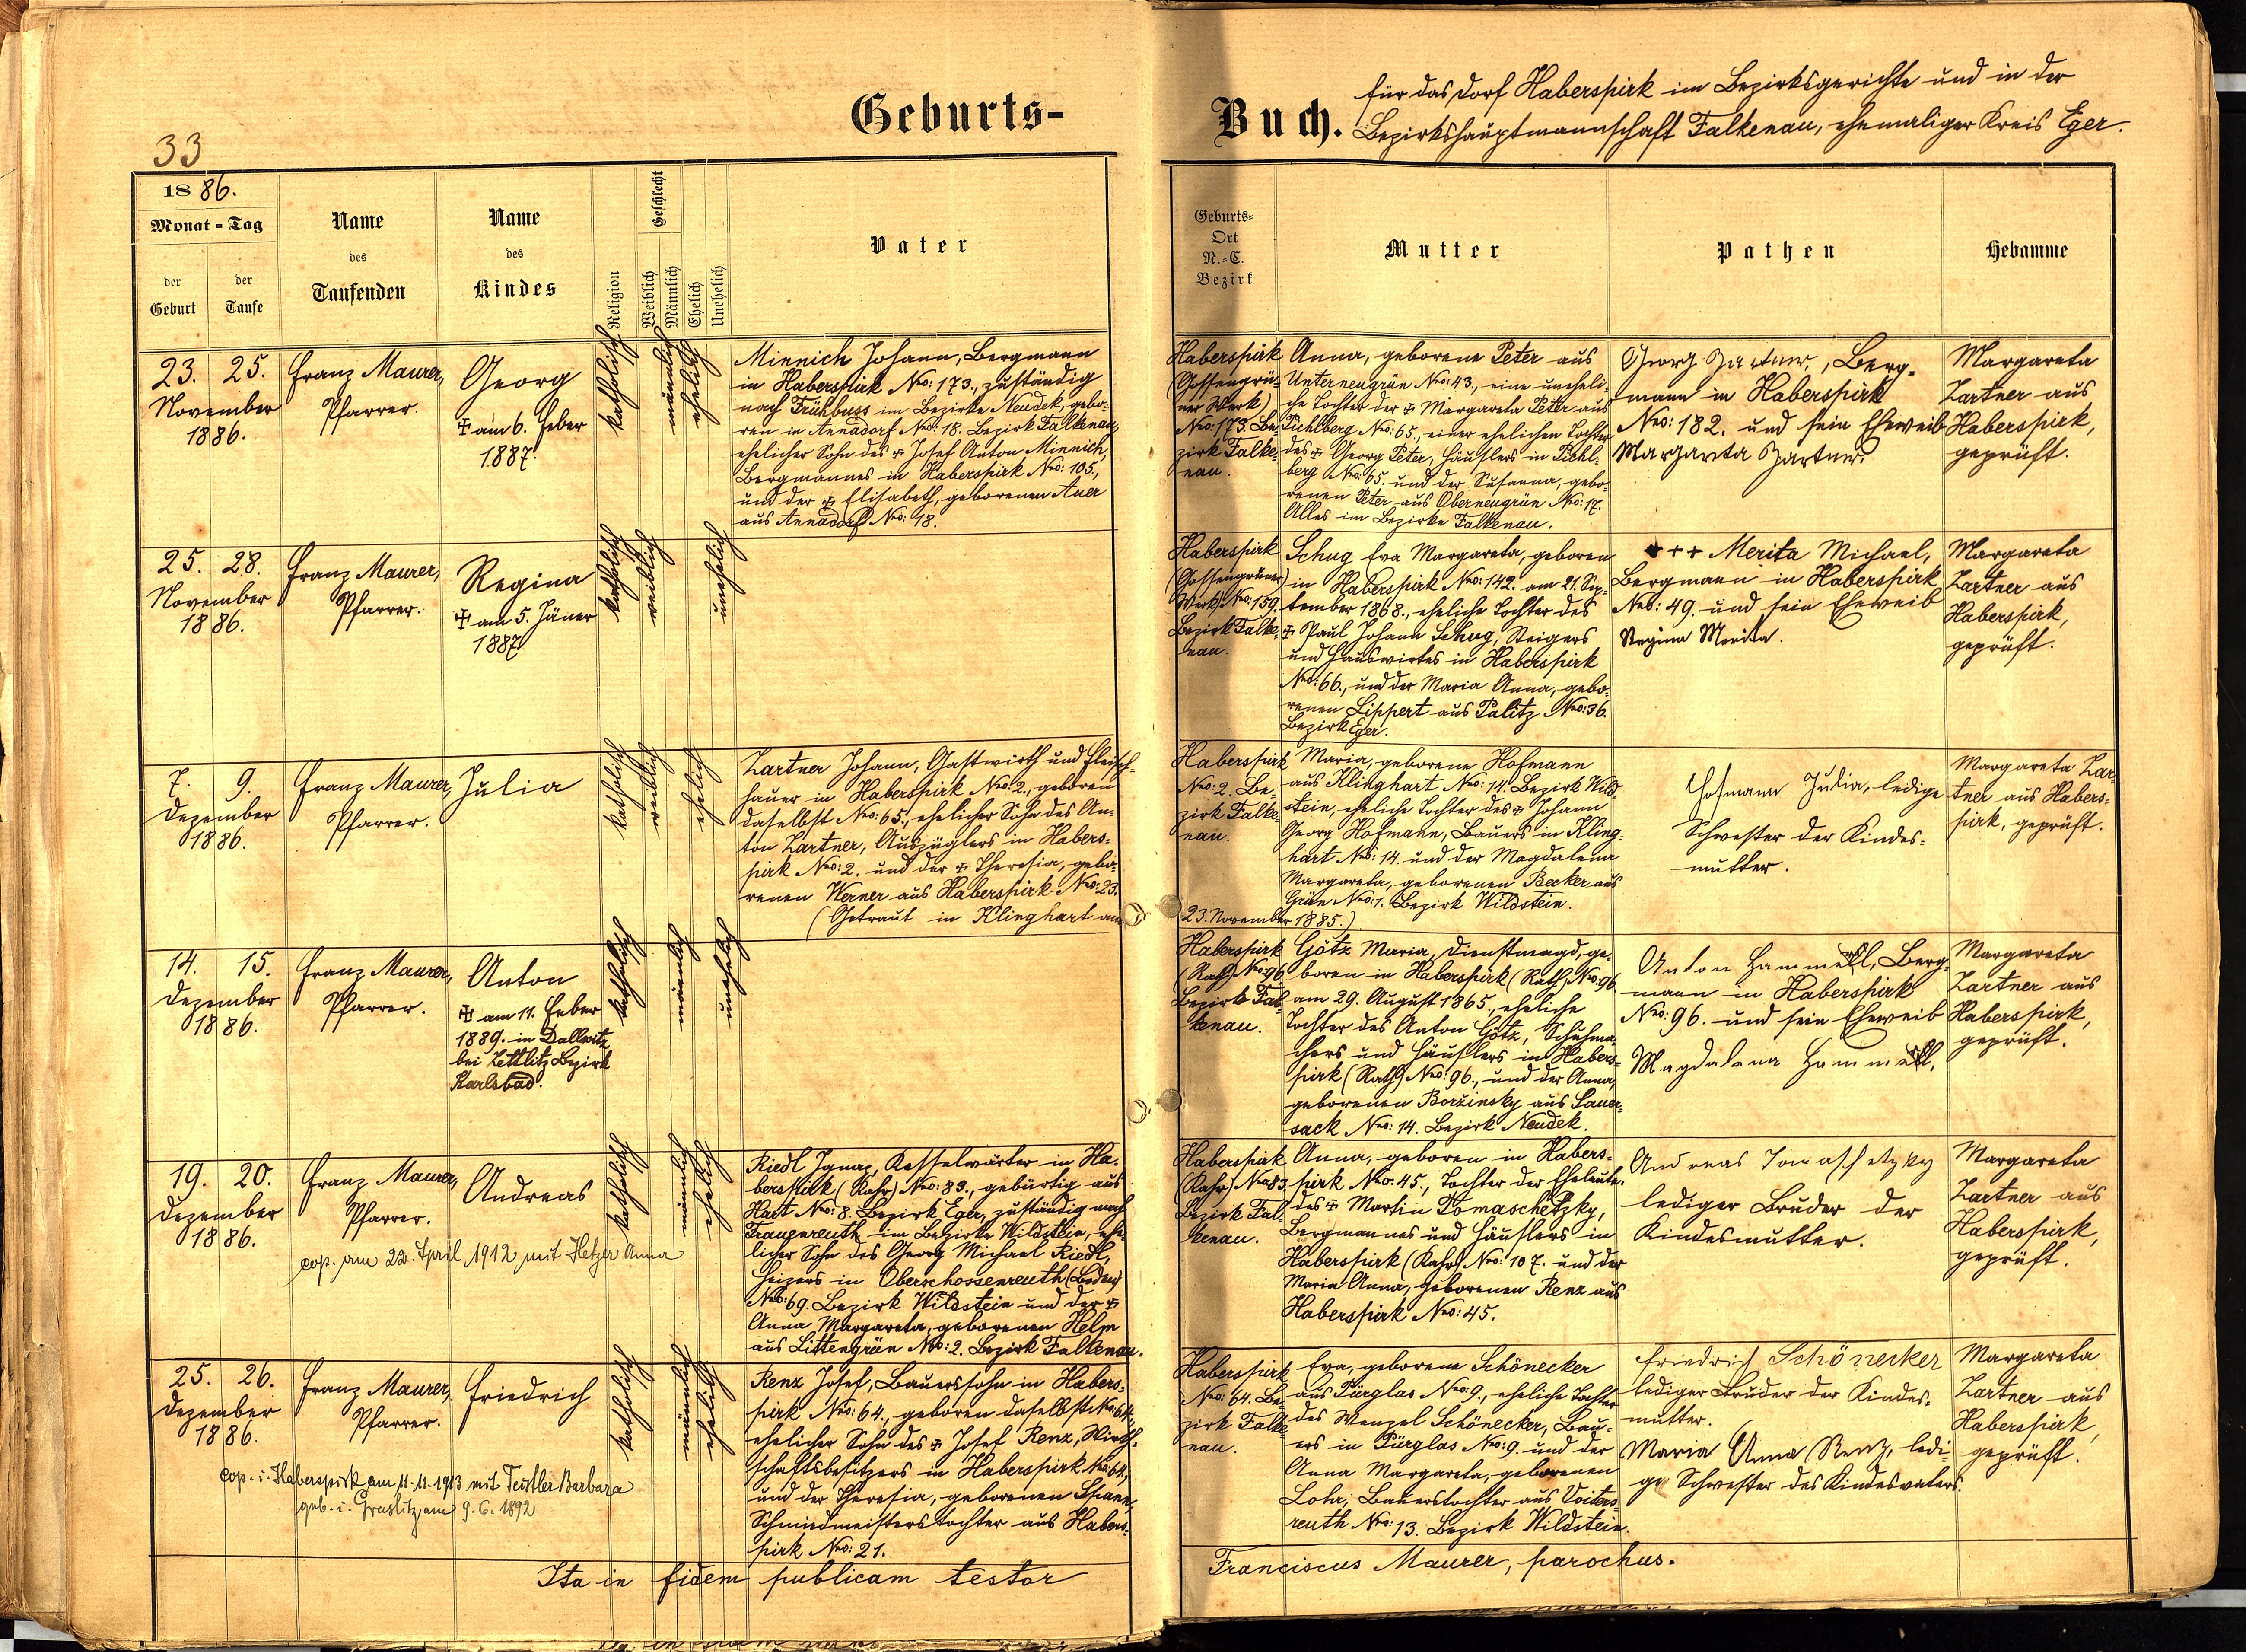 33
Geburts-
Buch.
für das Dorf Haberspirk im Bezirksgerichte und in der
Bezirkshauptmannschaft Falkenau, ehemaliger Kreis Eger.
1886.
Monat-Tag
der
Geburt
der
Taufe
Name
des
Taufenden
Name
des
Kindes
Religion
Geschlecht
Weiblich
Männlich
Ehelich
Unehelich
Vater
Geburts-
Ort
N.-C.
Bezirk
Mutter
Pathen
Hebamme
23. 25.
November
1886.
Franz Maurer,
Pfarrer.
Georg
✠ am 6. Feber
1887.
katholisch
männlich
ehelich
Minnich Johann, Bergmann
in Haberspirk Nro: 173., zuständig
nach Frühbuss im Bezirke Neudek, gebo-
ren in Annadorf Nro: 18. Bezirk Falkenau,
ehelicher Sohn des ✠ Josef Anton Minnich,
Bergmannes in Haberspirk Nro: 105.,
und der ✠ Elisabeth, geborenen Auer
aus Annadorf Nro: 18.
Haberspirk
(Gossengrü-
ner Werk)
Nro: 173. Be-
zirk Falke-
nau.
Anna, geborene Peter aus
Unterneugrün Nro: 43., eine uneheli-
che Tochter der ✠ Margareta Peter aus
Pichlberg Nro: 65., einer ehelichen Tochter
des ✠ Georg Peter, Häuslers in Pichl-
berg Nro: 65. und der Susanna, gebo-
renen Peter aus Oberneugrün Nro: 17.
Alles im Bezirke Falkenau.
Georg Zartner, Berg-
mann in Haberspirk
Nro: 182. und sein Eheweib
Margareta Zartner.
Margareta
Zartner aus
Haberspirk,
geprüft.
25. 28.
November
1886.
Franz Maurer,
Pfarrer.
Regina
✠ am 5. Jäner
1887
katholisch
weiblich
unehelich
Haberspirk
(Gossengrüner
Werk) Nro: 159.
Bezirk Falke-
nau.
Schug Eva Margareta, geboren
in Haberspirk Nro: 142. am 21. Sep-
tember 1868., eheliche Tochter des
✠ Paul Johann Schug, Steigers
und Hauswirtes in Haberspirk
Nro: 66., und der Maria Anna, gebo-
renen Lippert aus Palitz Nro: 36.
Bezirk Eger.
+++ Merita Michael,
Bergmann in Haberspirk
Nro: 49. und sein Eheweib
Regina Merita.
Margareta
Zartner aus
Haberspirk,
geprüft.
7. 9.
Dezember
1886.
Franz Maurer,
Pfarrer.
Julia
katholisch
weiblich
ehelich
Zartner Johann, Gastwirth und Fleisch-
hauer in Haberspirk Nro: 2., geboren
daselbst Nro: 65., ehelicher Sohn des An-
ton Zartner, Auszüglers in Habers-
pirk Nro: 2. und der ✠ Theresia, gebo-
renen Werner aus Haberspirk Nro: 23.
(Getraut in Klinghart am
23. November 1885.)
Haberspirk
Nro: 2. Be-
zirk Falke-
nau.
Maria, geborene Hofmann
aus Klinghart Nro: 14. Bezirk Wild-
stein, eheliche Tochter des ✠ Johann
Georg Hofmann, Bauers in Kling-
hart Nro: 14. und der Magdalena
Margareta, geborenen Becker aus
Grün Nro: 1. Bezirk Wildstein.
Hofmann Julia, ledige
Schwester der Kindes-
mutter.
Margareta Zar-
tner aus Habers-
pirk, geprüft.
14. 15.
Dezember
1886.
Franz Maurer,
Pfarrer.
Anton
✠ am 11. Feber
1889. in Dallwitz
bei Zettlitz Bezirk
Karlsbad.
katholisch
männlich
unehelich
Haberspirk
(Rath) Nro: 96
Bezirk Fal-
kenau.
Götz Maria, Dienstmagd, ge-
boren in Haberspirk (Rath) Nro: 96.
am 29. August 1865., eheliche
Tochter des Anton Götz, Schuhma-
chers und Häuslers in Habers-
pirk (Rath) Nro: 96., und der Anna,
geborenen Boržinsky aus Sauer-
sack Nro: 14. Bezirk Neudek.
Anton Hammerl, Berg-
mann in Haberspirk
Nro: 96. und sein Eheweib
Magdalena Hammerl.
Margareta
Zartner aus
Haberspirk,
geprüft.
19. 20.
Dezember
1886.
Franz Maurer,
Pfarrer.
Andreas
cop. am 22. April 1912 mit Hetzer Anna
katholisch
männlich
ehelich
Riedl Ignaz, Kesselwärter in Ha-
berspirk (Rahr) Nro: 83., gebürtig aus
Hart Nro: 8. Bezirk Eger, zuständig nach
Frauenreuth im Bezirke Wildstein, ehe-
licher Sohn des Georg Michael Riedl,
Heizers in Oberschossenreuth (Boden)
Nro: 69. Bezirk Wildstein und der ✠
Anna Margareta, geborenen Helm
aus Littengrün Nro: 2. Bezirk Falkenau.
Haberspirk
(Rahr) Nro: 83.
Bezirk Fal-
kenau.
Anna, geboren in Habers-
pirk Nro: 45., Tochter der Eheleute
des ✠ Martin Tomaschetzky,
Bergmannes und Häuslers in
Haberspirk (Rahr) Nro: 107. und der
Maria Anna, geborenen Renz aus
Haberspirk Nro: 45.
Andreas Tomaschetzky
lediger Bruder der
Kindesmutter.
Margareta
Zartner aus
Haberspirk,
geprüft.
25. 26.
Dezember
1886.
Franz Maurer,
Pfarrer.
Friedrich
cop. i. Haberspirk am 11.11.1913 mit Teistler Barbara
geb. i. Graslitz, am 9.6.1892
katholisch
männlich
ehelich
Renz Josef, Bauerssohn in Habers-
pirk Nro: 64., geboren daselbst Nro: 64.,
ehelicher Sohn des ✠ Josef Renz, Wirth-
schaftsbesitzers in Haberspirk Nro: 64.,
und der Theresia, geborenen Spann,
Schmiedmeisterstochter aus Habers-
pirk Nro: 21.
Haberspirk
Nro: 64. Be-
zirk Falke-
nau.
Eva, geborene Schönecker
aus Pürglas Nro: 9., eheliche Tochter
des Wenzel Schönecker, Bau-
ers in Pürglas Nro: 9. und der
Anna Margareta, geborenen
Lohr, Bauerstochter aus Voiters-
reuth Nro: 13. Bezirk Wildstein.
Friedrich Schönecker
lediger Bruder der Kindes-
mutter.
Maria Anna Renz, ledi-
ge Schwester des Kindesvaters.
Margareta
Zartner aus
Haberspirk,
geprüft.
Ita in fidem publicam testor
Franciscus Maurer, parochus.